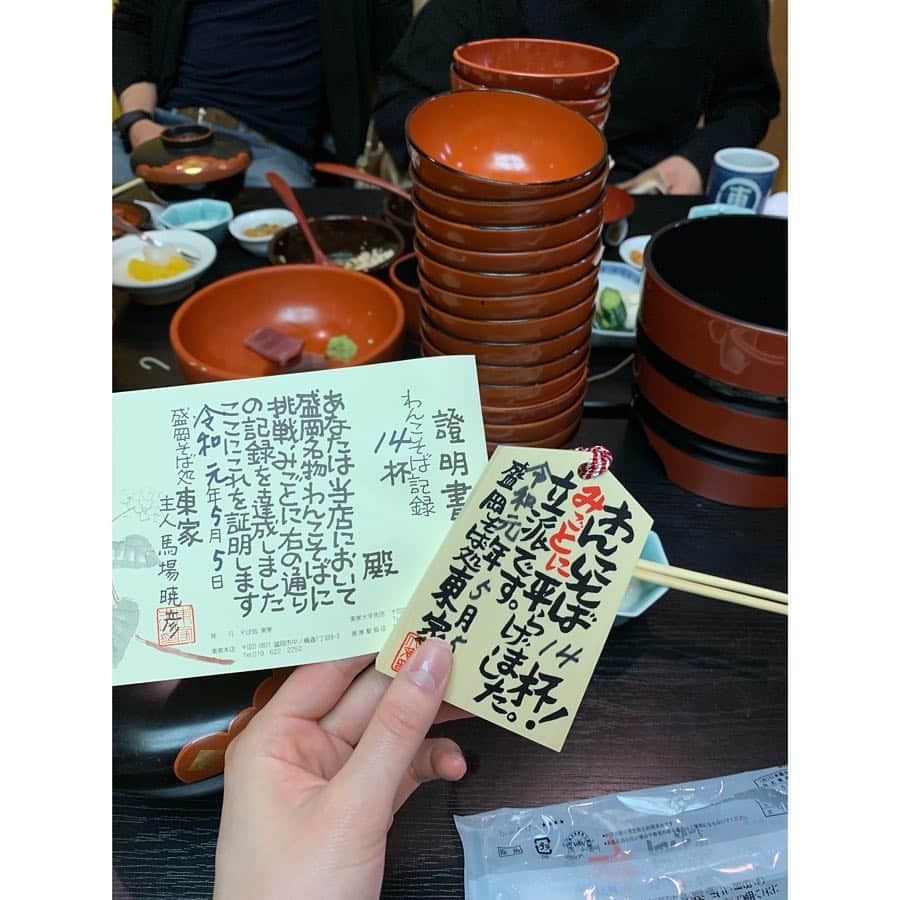 證明書
わんこそば記録
14杯
殿
あなたは当店において
盛岡名物わんこそばに
挑戦みごとに右の通り
の記録を達成しました
ここにこれを証明します
令和元年5月5日
盛岡そば処 東家
主人 馬場暁彦
東家本店
Tel.019-622-2252
わんこそば 14杯!
みごとに平らげました。
立派です。
令和元年5月
盛岡そば処東家
東